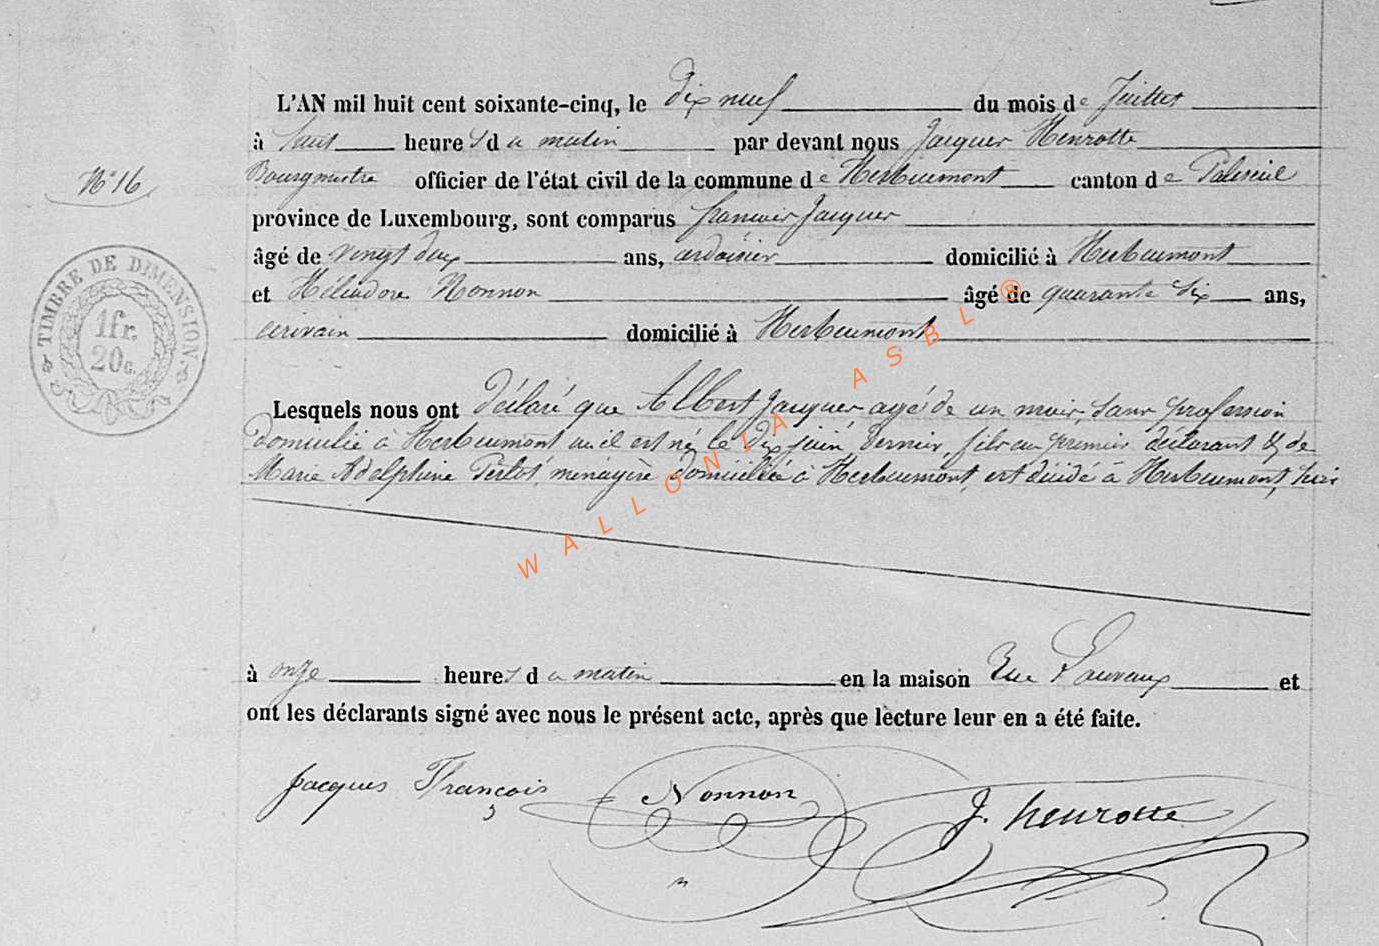 L'AN mil huit cent soixante-cinq, le dix neuf du mois de Juillet
à huit heures du matin par devant nous Jacques Henrotte
N° 16
Bourgmestre officier de l'état civil de la commune de Herbeumont canton de Paliseul
province de Luxembourg, sont comparus francois Jacques
âgé de vingt deux ans, ardoisier domicilié à Herbeumont
et Héliodore Nonnon âgé de quarante six ans,
écrivain domicilié à Herbeumont
TIMBRE DE DIMENSION
1fr.
20c.
Lesquels nous ont déclaré que Albert Jacques agé de un mois, sans profession
domicilié à Herbeumont où il est né le dix juin dernier, fils du premier déclarant & de
Marie Adelphine Perlot, ménagère domiciliée à Herbeumont, est décédé à Herbeumont, hier
à onze heures du matin en la maison Rue Lauvaux et
ont les déclarants signé avec nous le présent acte, après que lecture leur en a été faite.
Jacques François Nonnon J. henrotte
WALLONIA ASBL ®